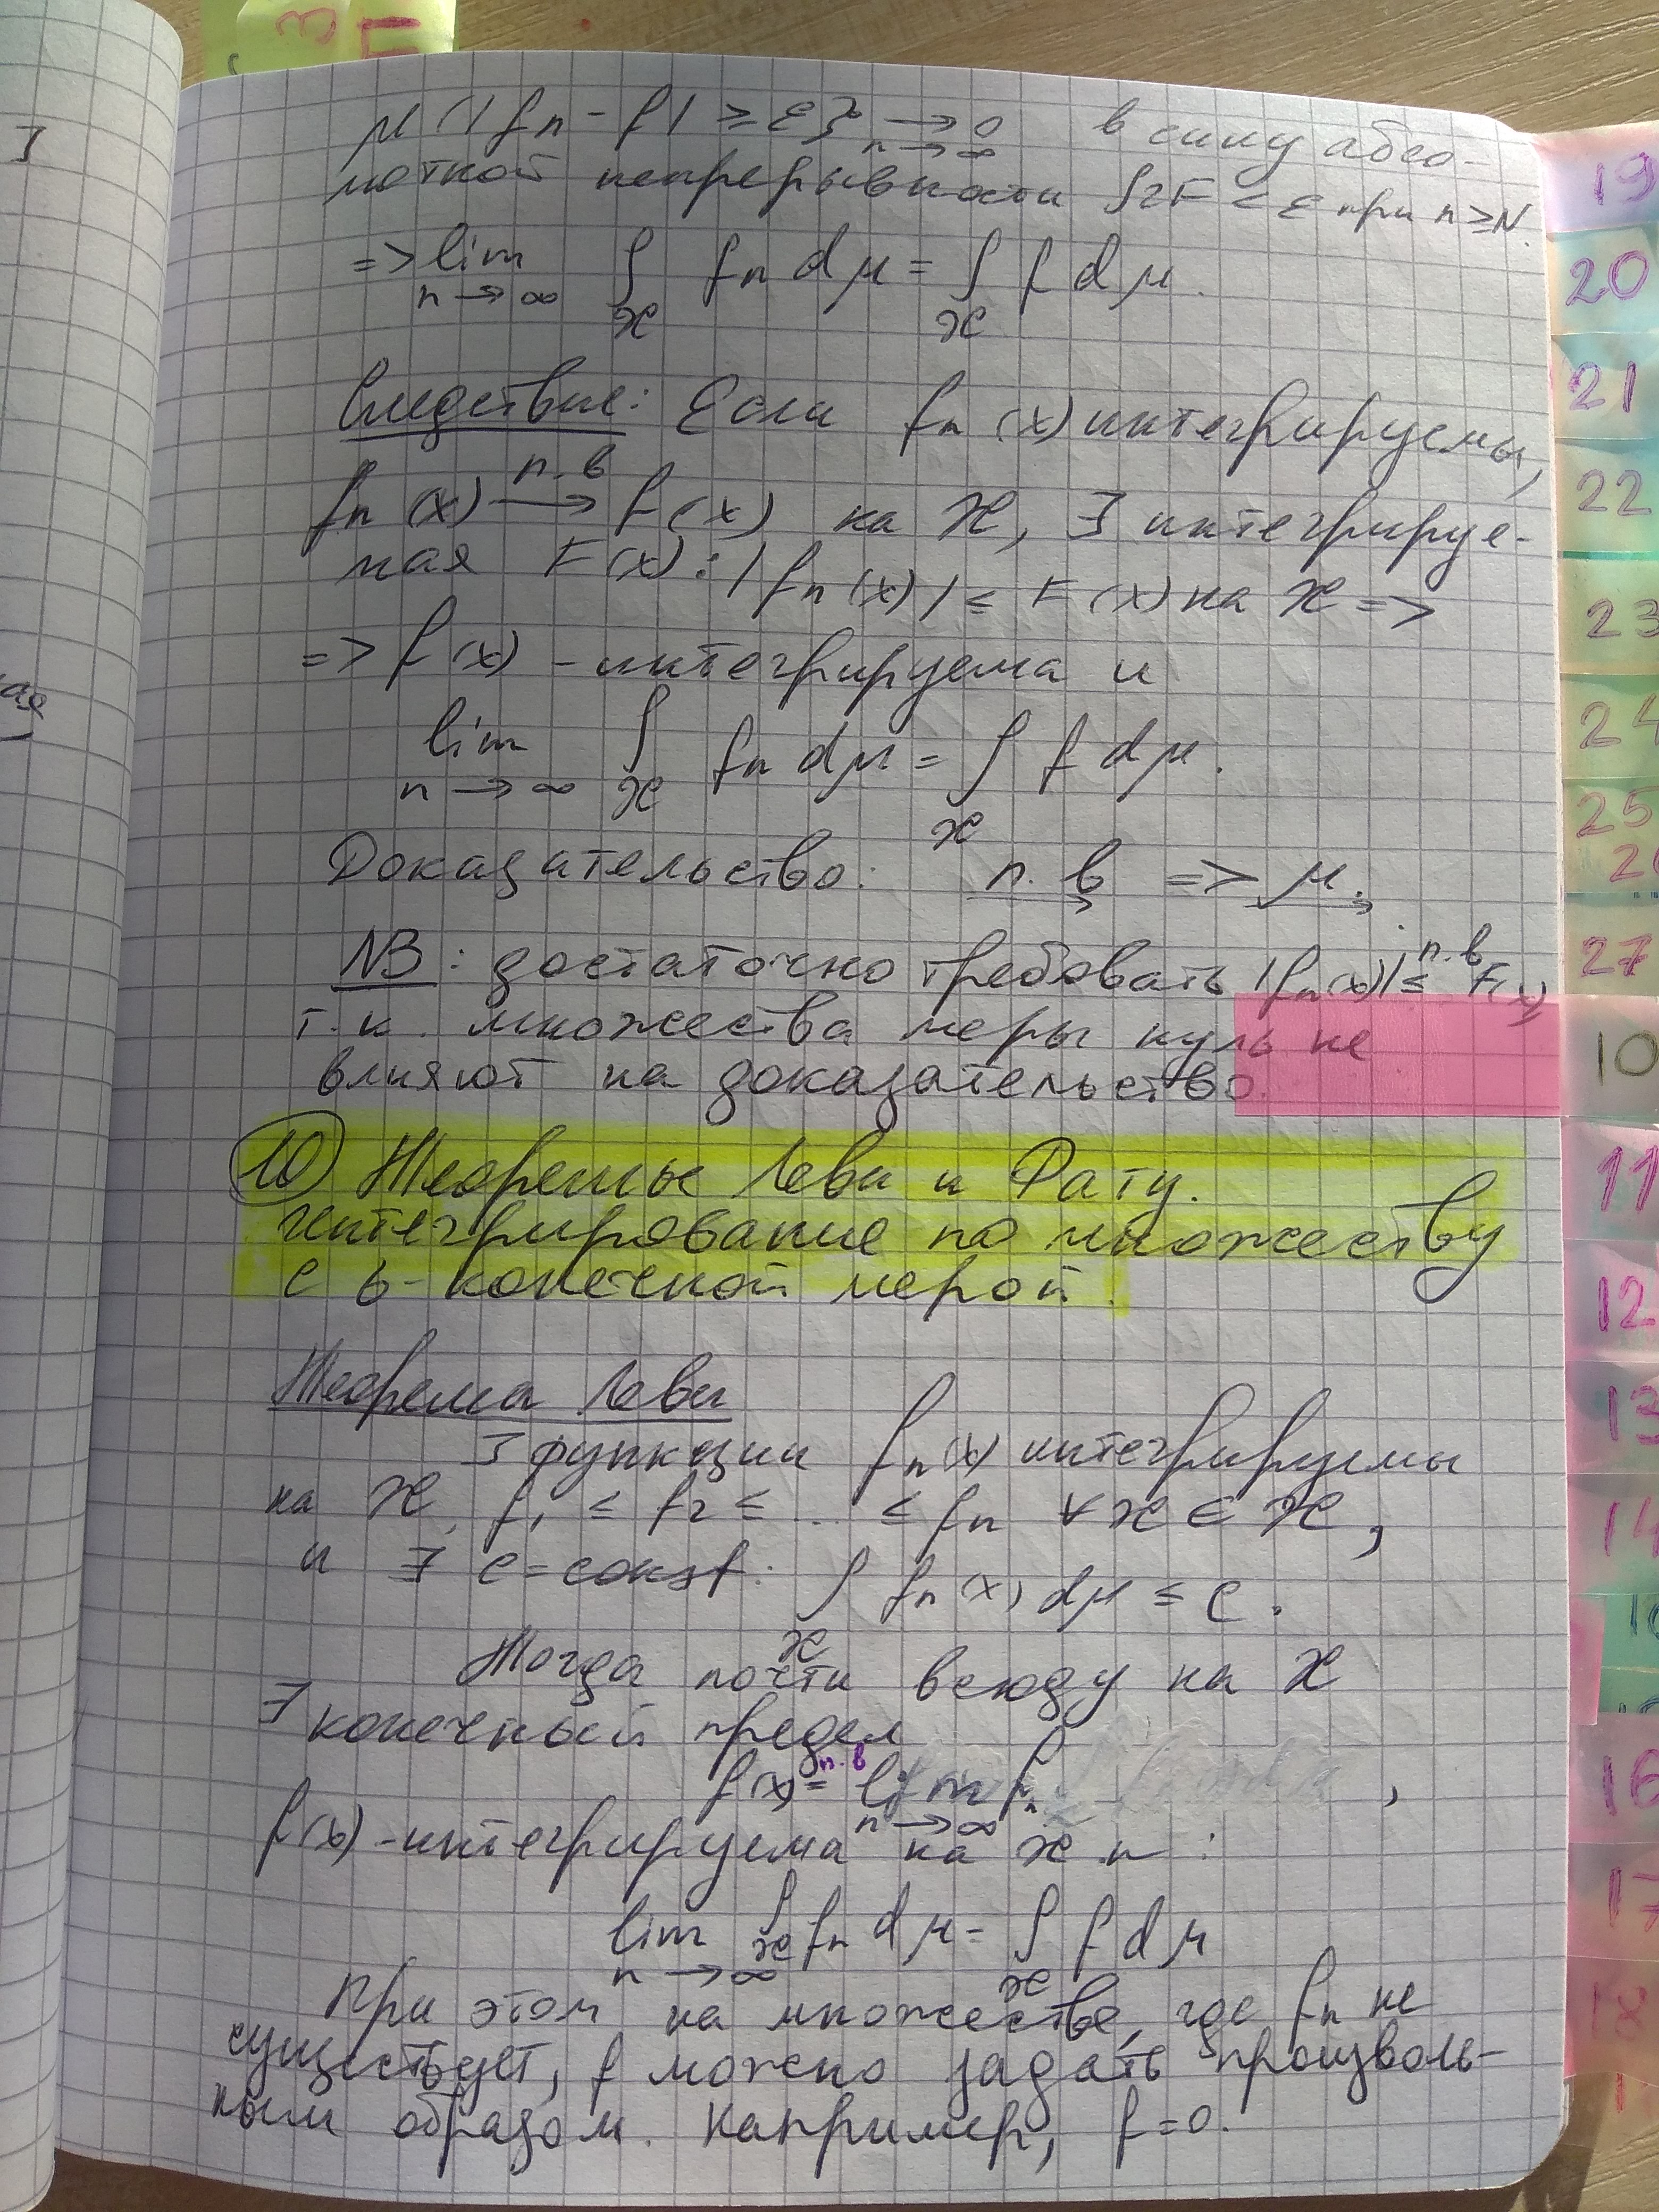 μ{|fn - f| ≥ ε} → 0 n→∞ в силу абсо-
лютной непрерывности ∫2F < ε при n ≥ N.
=> lim n→∞ ∫ fn dμ = ∫ f dμ.
X X
Следствие: Если fn(x) интегрируемы,
fn(x) п.в → f(x) на X, ∃ интегрируе-
мая F(x): |fn(x)| ≤ F(x) на X =>
=> f(x) - интегрируема и
lim n→∞ ∫ fn dμ = ∫ f dμ.
X X
Доказательство: п.в → => μ →.
NB: достаточно требовать |fn(x)| п.в ≤ F(x)
т.к. множества меры нуль не
влияют на доказательство.
10 Теоремы Леви и Фату.
интегрирование по множеству
с б-конечной мерой.
Теорема Леви
∃ функции fn(x) интегрируемы
на X, f1 ≤ f2 ≤ ... ≤ fn ∀x ∈ X,
и ∃ c = const: ∫ fn(x) dμ ≤ c.
X
Тогда почти всюду на X
∃ конечный предел
f(x) п.в = lim n→∞ fn,
f(x) - интегрируема на X и:
lim n→∞ ∫X fn dμ = ∫X f dμ
При этом на множестве, где fn не
существует, f можно задать произволь-
ным образом. Например, f = 0.
19
20
21
22
23
24
25
27
10
11
12
13
14
16
17
18